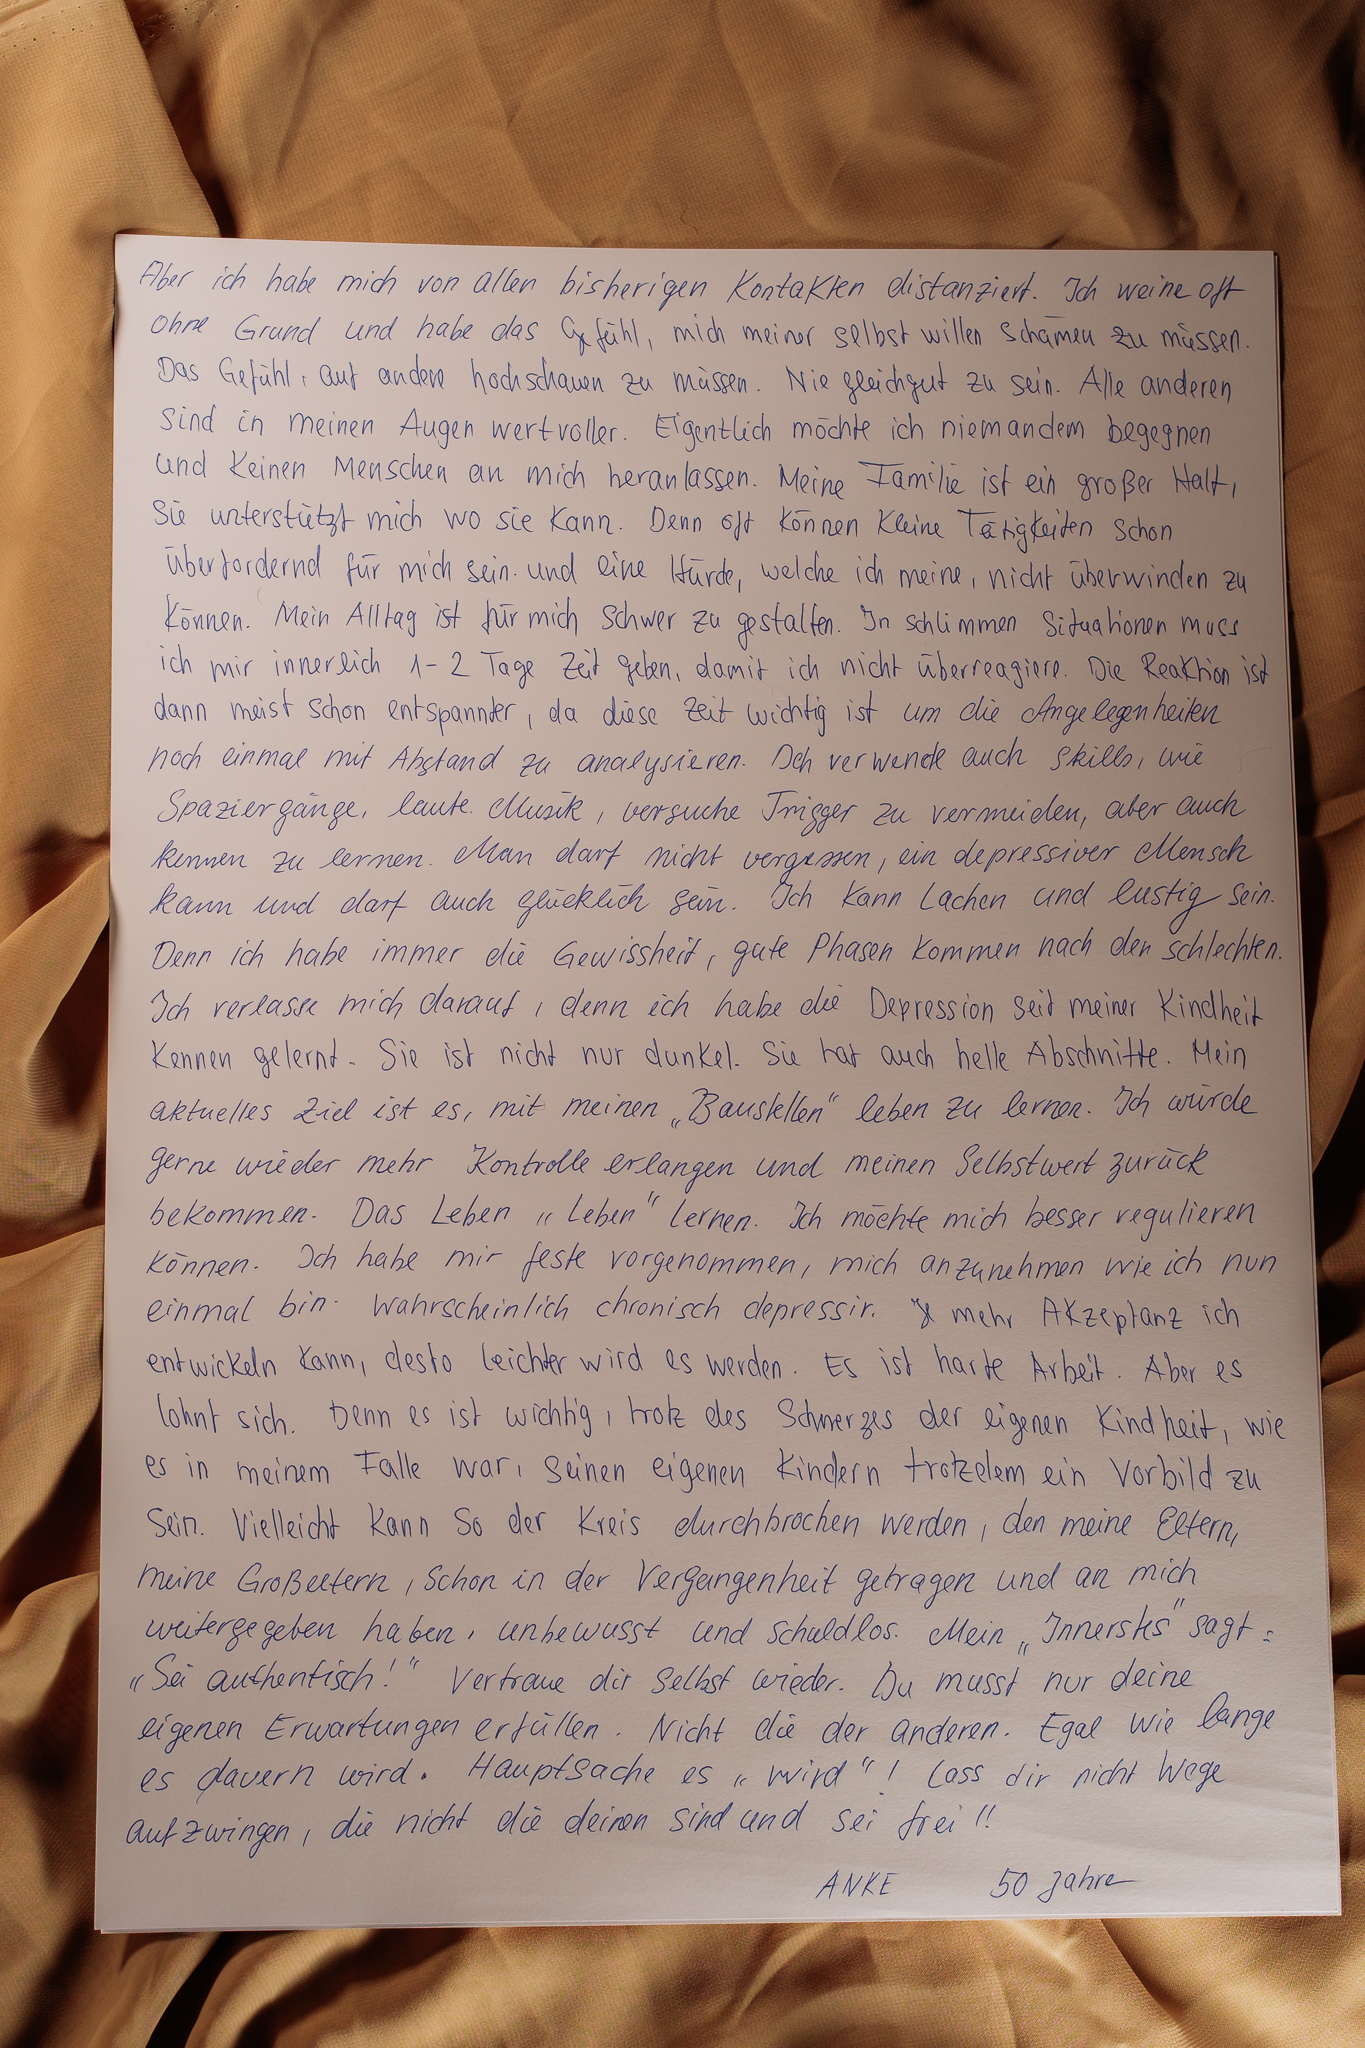 Aber ich habe mich von allen bisherigen Kontakten distanziert. Ich weine oft
ohne Grund und habe das Gefühl, mich meiner selbst willen schämen zu müssen.
Das Gefühl, auf andere hochschauen zu müssen. Nie gleichgut zu sein. Alle anderen
sind in meinen Augen wertvoller. Eigentlich möchte ich niemandem begegnen
und keinen Menschen an mich heranlassen. Meine Familie ist ein großer Halt,
Sie unterstützt mich wo sie kann. Denn oft können kleine Tätigkeiten schon
überfordernd für mich sein. und eine Hürde, welche ich meine, nicht überwinden zu
können. Mein Alltag ist für mich schwer zu gestalten. In schlimmen Situationen muss
ich mir innerlich 1-2 Tage Zeit geben, damit ich nicht überreagiere. Die Reaktion ist
dann meist schon entspannter, da diese Zeit wichtig ist um die Angelegenheiten
noch einmal mit Abstand zu analysieren. Ich verwende auch Skills, wie
Spaziergänge, laute Musik, versuche Trigger zu vermeiden, aber auch
kennen zu lernen. Man darf nicht vergessen, ein depressiver Mensch
kann und darf auch glücklich sein. Ich kann Lachen und lustig sein.
Denn ich habe immer die Gewissheit, gute Phasen kommen nach den schlechten.
Ich verlasse mich darauf, denn ich habe die Depression seit meiner Kindheit
kennen gelernt. Sie ist nicht nur dunkel. Sie hat auch helle Abschnitte. Mein
aktuelles Ziel ist es, mit meinen „Baustellen“ leben zu lernen. Ich würde
gerne wieder mehr Kontrolle erlangen und meinen Selbstwert zurück
bekommen. Das Leben „Leben“ lernen. Ich möchte mich besser regulieren
können. Ich habe mir feste vorgenommen, mich anzunehmen wie ich nun
einmal bin. Wahrscheinlich chronisch depressiv. Je mehr Akzeptanz ich
entwickeln kann, desto leichter wird es werden. Es ist harte Arbeit. Aber es
lohnt sich. Denn es ist wichtig, trotz des Schmerzes der eigenen Kindheit, wie
es in meinem Falle war, seinen eigenen Kindern trotzdem ein Vorbild zu
sein. Vielleicht kann so der Kreis durchbrochen werden, den meine Eltern,
meine Großeltern, schon in der Vergangenheit getragen und an mich
weitergegeben haben, unbewusst und schuldlos. Mein „Innerstes“ sagt:
„Sei authentisch!“ Vertraue dir selbst wieder. Du musst nur deine
eigenen Erwartungen erfüllen. Nicht die der anderen. Egal wie lange
es dauern wird. Hauptsache es „wird“! Lass dir nicht Wege
aufzwingen, die nicht die deinen sind und sei frei!!
ANKE 50 Jahre